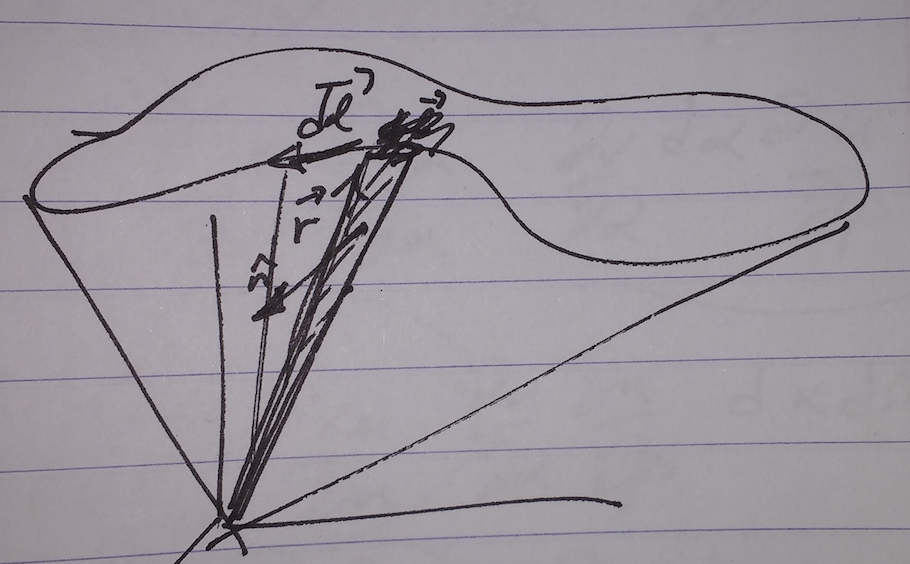 dl⃗
r⃗
n̂